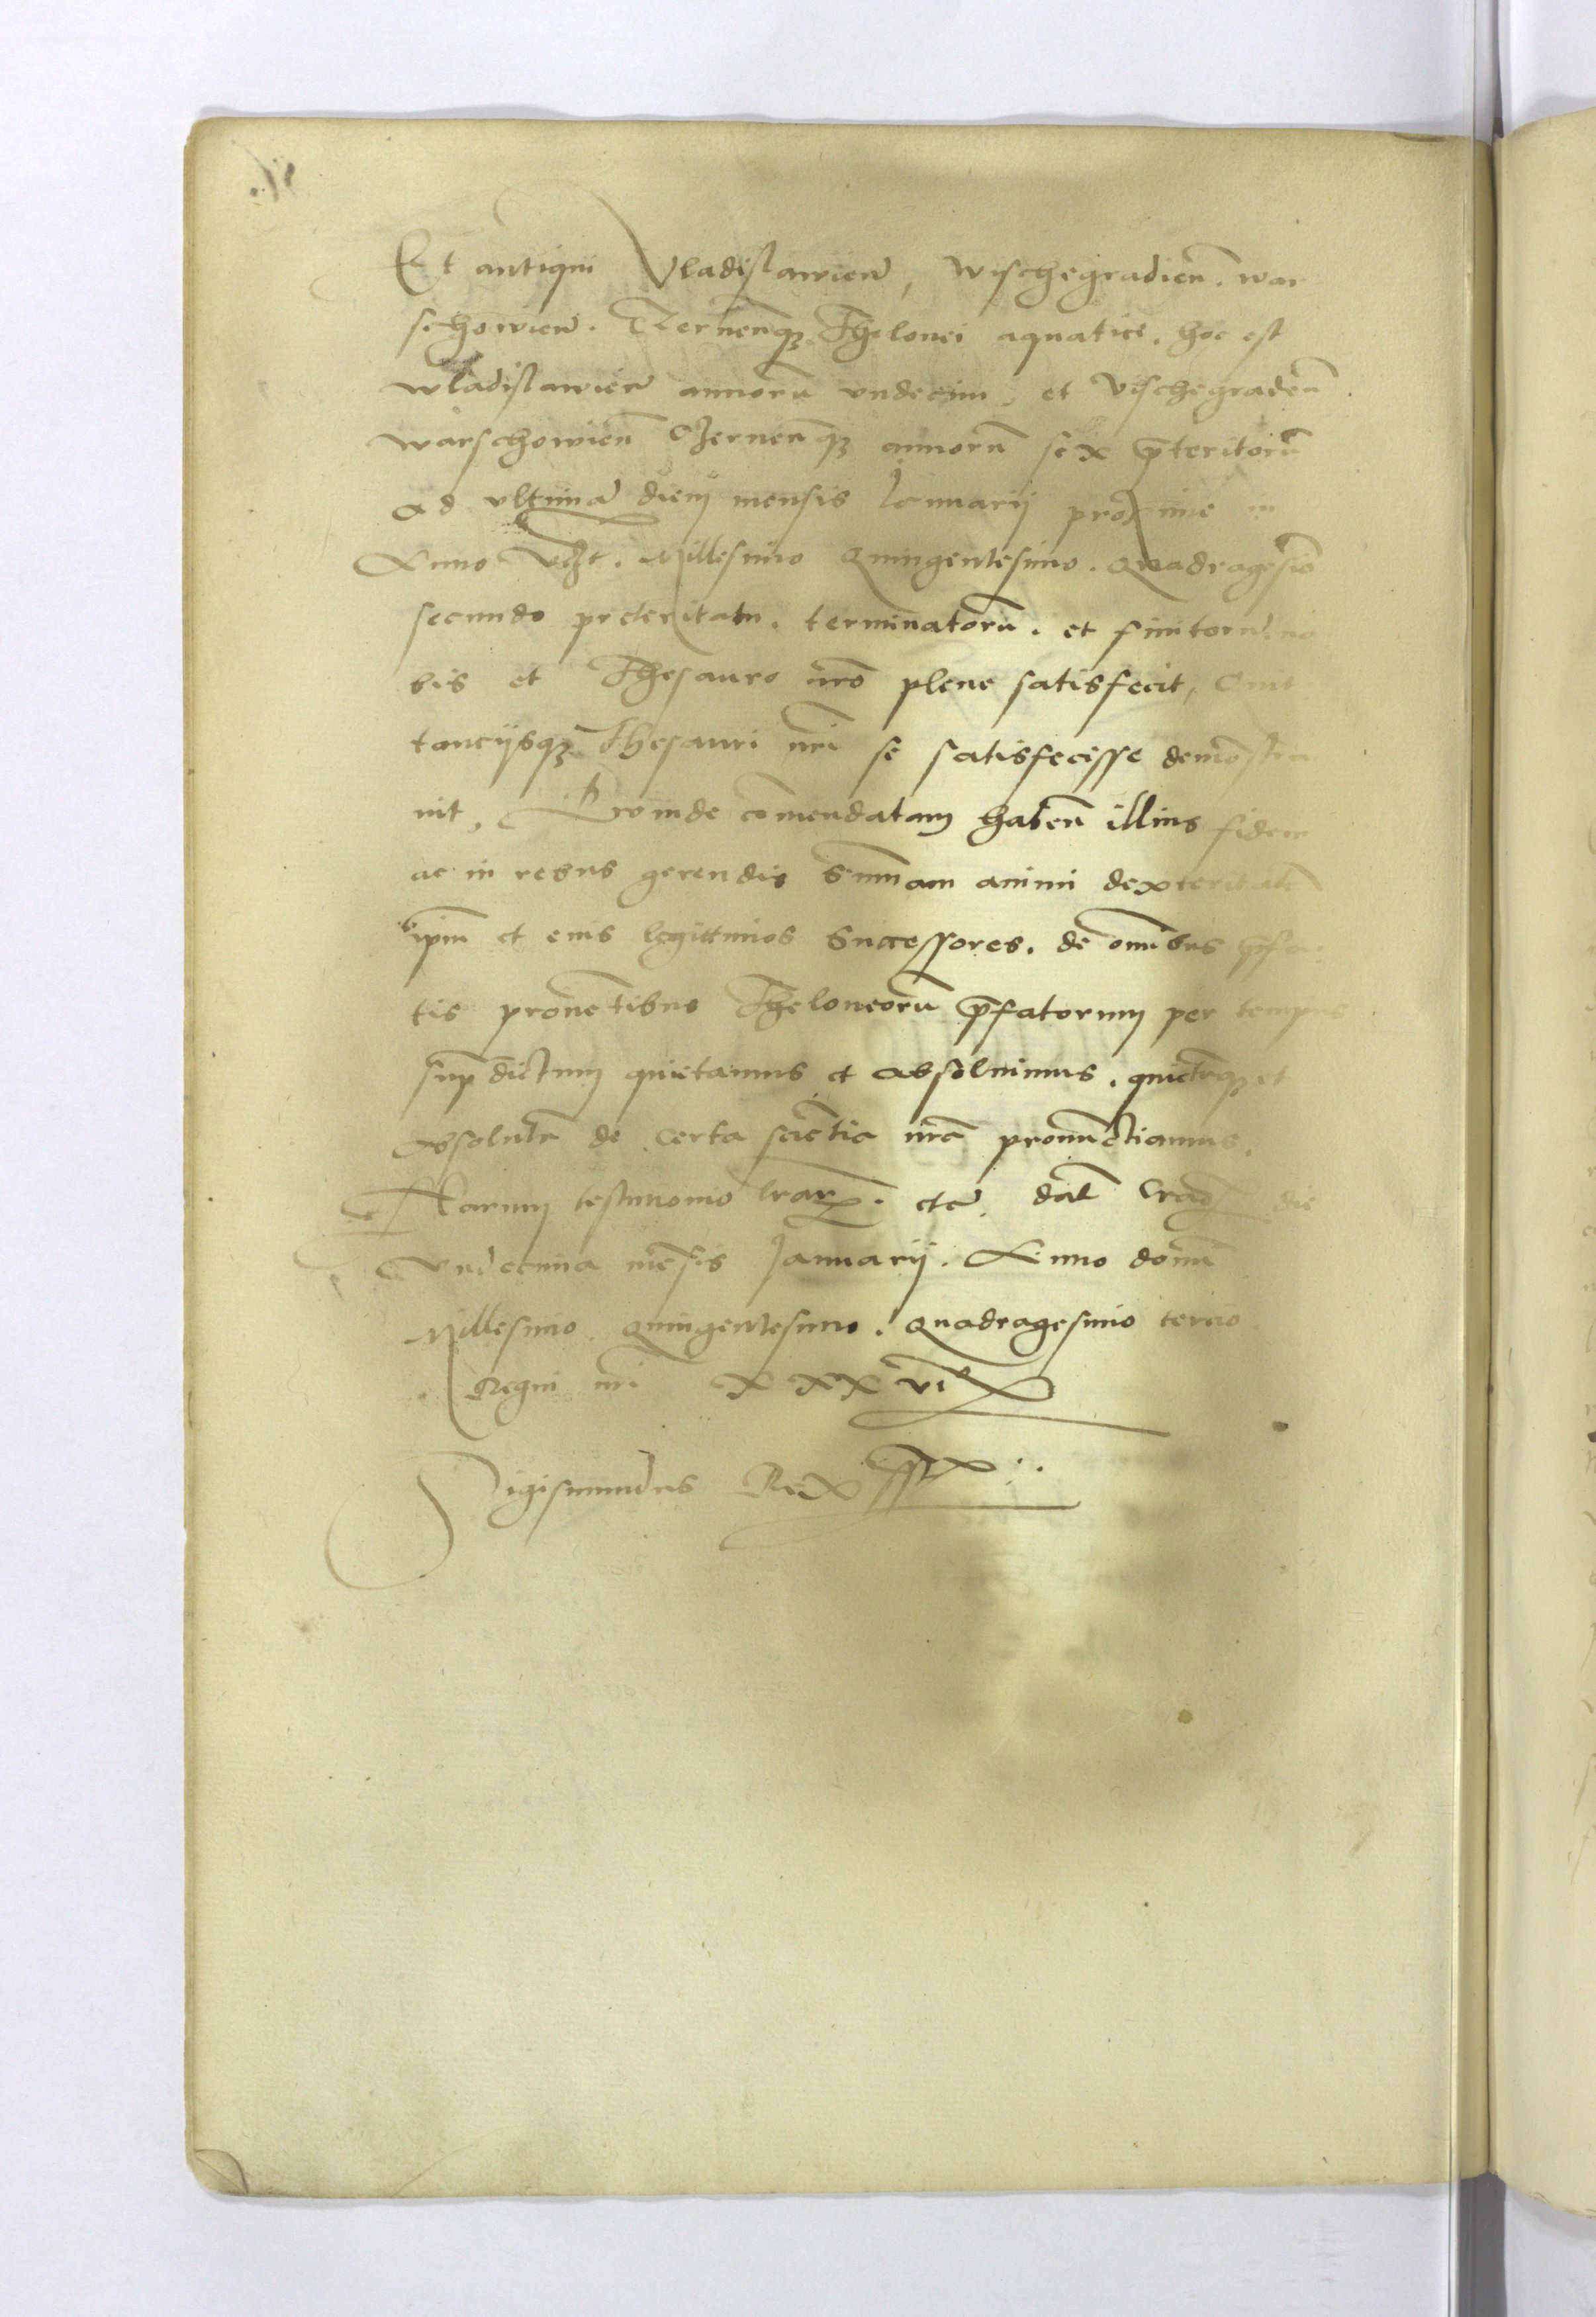 Et antiqui Vladislawien̄, Wischegradien̄. war
schowien̄. Czernen̄q₃ Thelonei aquatici. hoc est
wladislawien̄ annorū vndecim, et Vischegraden̄
warschowien̄ Czernen̄q₃ annorū sex p̄teritorū
ad vltimā diem mensis Januarij proxime in
Anno vꝫt. Millesimo Quingentesimo. Quadragesiō
secundo preteritam. terminatorū. et finitorū. no
bis et Thesauro nrō plene satisfecit, Quit
tancijsq₃ Thesauri nri se satisfecisse demōstra
uit, Proinde cōmendatam haben̄ illius fidem
ac in rebus gerendis Sum̄am animi dexteritatē
ip̄m et eius legittimos Successores. de omībus p̄fa
tis prouētibus Theloneorū p̄fatorum per tempus
sup̄dictum quietamus et absoluimus. quietūq₃ et
absolutū de certa sciētia nr̄a pronūctiamus.
Harum testimonio lrarꝝ. etc̄. dat̄ Crac die
Vndecima mēsis Januarij. Anno domī
Millesimo Quingentesimo. Quadragesimo tercio
Regni nri XXXVI
Sigismundus Rex sst